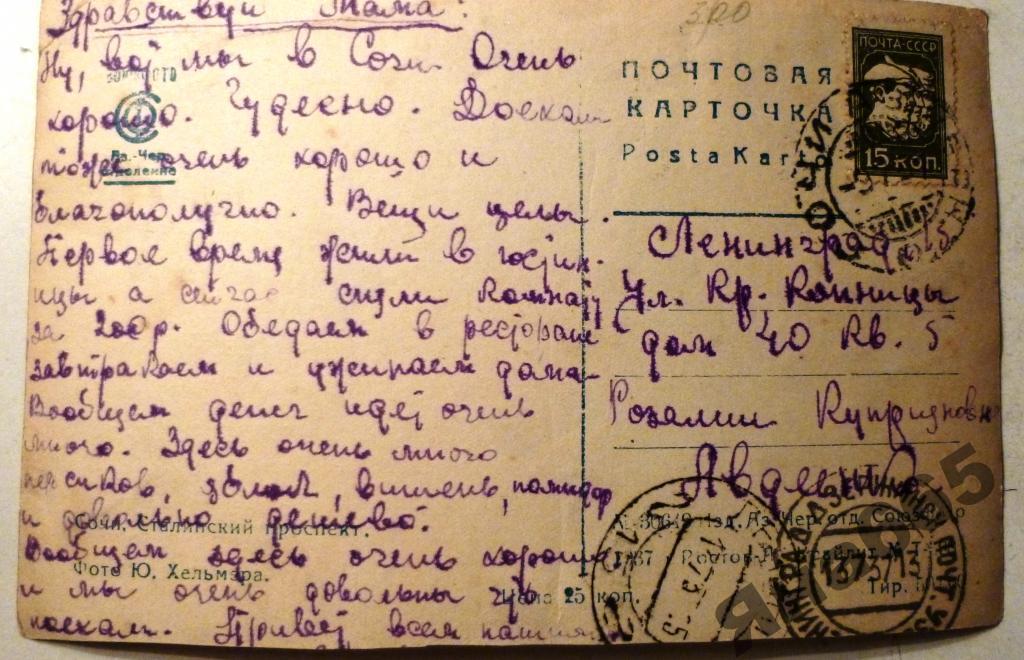 Здравствуй Мама!
Ну, вот мы в Сочи Очень
хорошо. Чудесно. Доехали
тоже очень хорошо и
благополучно. Вещи целы.
Первое время жили в гостин-
ицы а сейчас сняли комнату
за 200 р. Обедаем в ресторане
завтракаем и ужинаем дома
Вообщем денег идет очень
много. Здесь очень много
персиков, яблок, вишень, помидор
и довольно дешево.
Вообщем здесь очень хорошо
и мы очень довольны что
поехали. Привет всем нашим
Аз.-Чер.
отделение
Сочи. Сталинский проспект.
Фото Ю. Хельмэра.
Цена 25 коп.
ПОЧТОВАЯ
КАРТОЧКА
PostaKar
ПОЧТА-СССР
15 КОП
Ленинград 15
Ул. Кр. Конницы
дом 40 кв. 5
Розалии Куприяновне
Авдеенко
30649 Изд. Аз.-Чер. отд. Союзфото
Тир.
ЛЕНИНГРАД
1373713